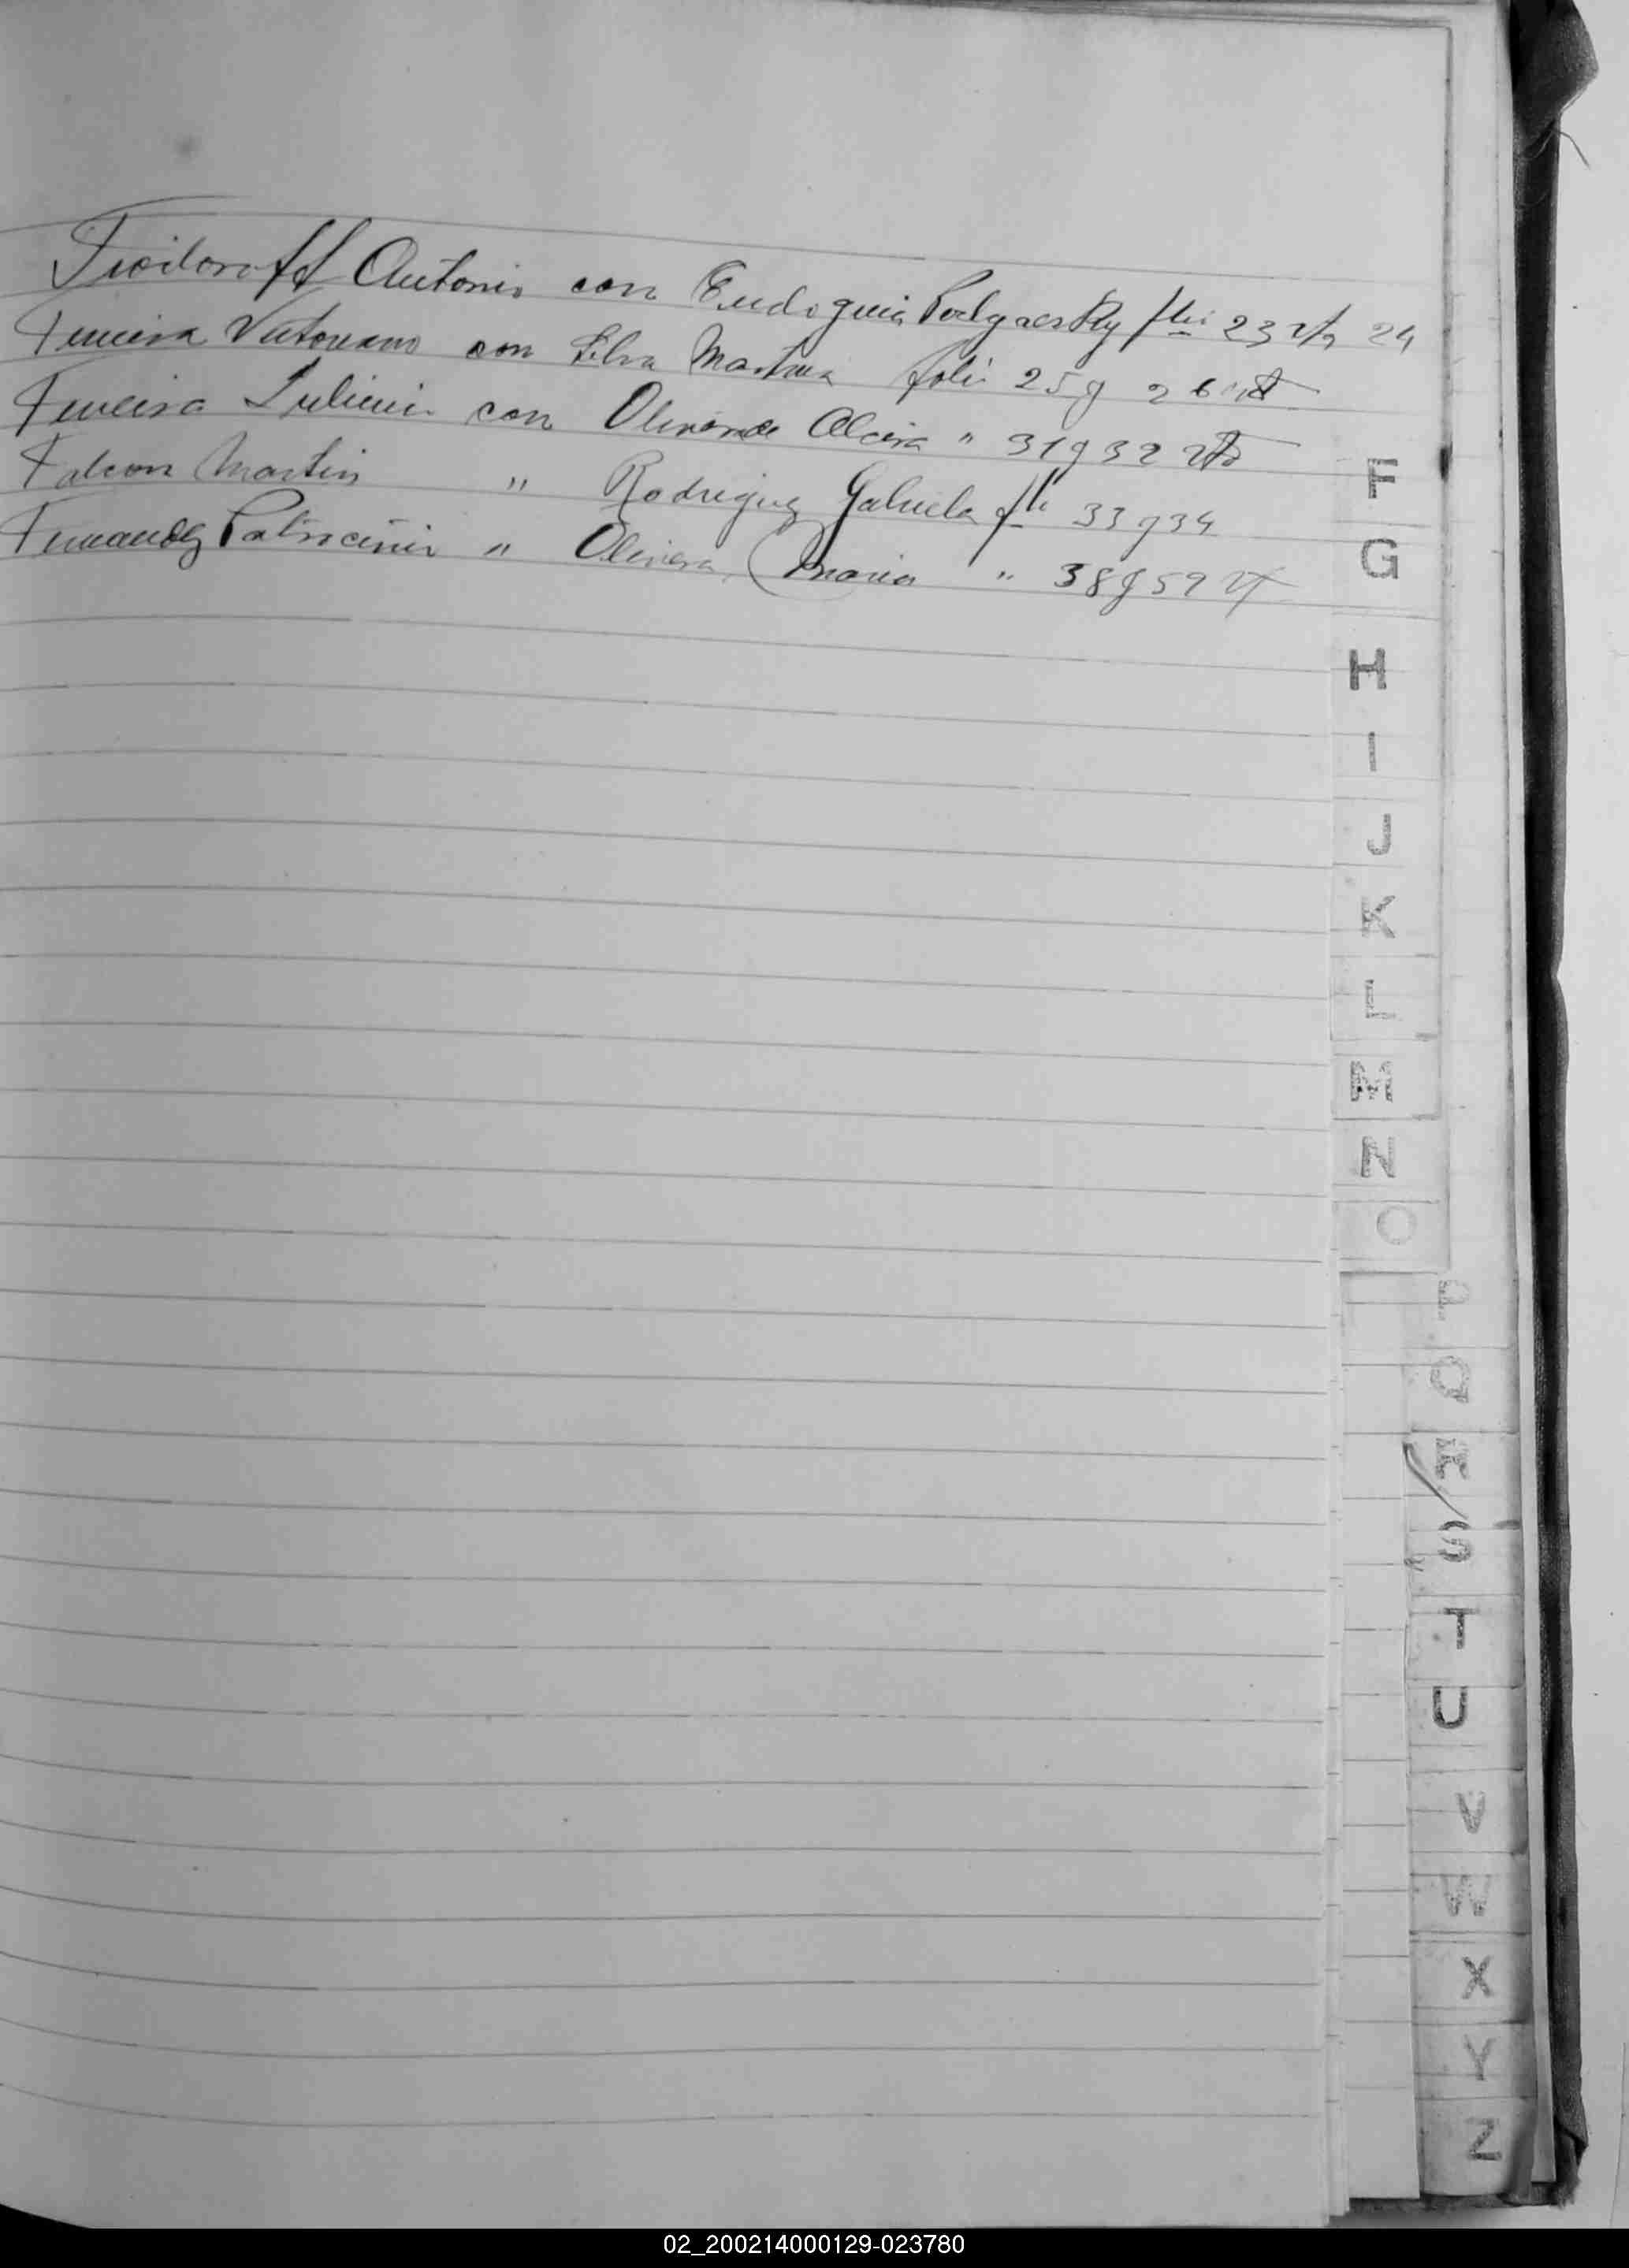 Fiodoroff Antonio con Eudoguia Podgaesky flio 23 vto 24
Ferreira Victoriano con Silva Martina folio 25 y 26 vto
Ferreira Juliana con Olivera Alcira " 31 y 32 vto
Falcon Martin " Rodriguez Gabriela flio 33 y 34
Fernandez Patrocinio " Olivera Maria " 38 y 59 vt
F
G
H
I
J
K
L
M
N
O
P
Q
R
S
T
U
V
W
X
Y
Z
02_200214000129-023780